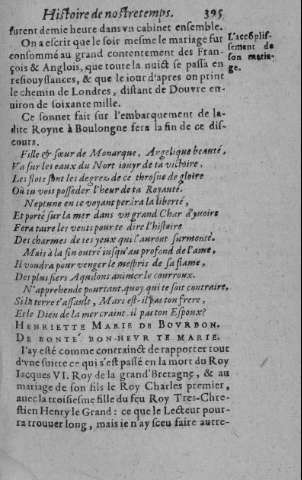 Histoire de nostre temps. 395
furent demie heure dans vn cabinet ensemble.
On a escrit que le soir mesme le mariage fut
consommé au grand contentement des Fran-
çois & Anglois, que toute la nuict se passa en
resiouyssances, & que le iour d'apres on print
le chemin de Londres, distant de Douvre en-
uiron de soixante mille.
L'accõplis-
sement de
son maria-
ge.
Ce sonnet fait sur l'embarquement de la-
dite Royne à Boulongne fera la fin de ce dis-
cours.
Fille & sœur de Monarque, Angelique beauté,
Va sur les eaux du Nort iouyr de ta victoire,
Les flots sont les degrez de ce throsne de gloire
Où tu vois posseder l'heur de ta Royauté.
Neptune en te voyant perdra la liberté,
Et porté sur la mer dans vn grand Char d'yuoire
Fera taire les vents pour te dire l'histoire
Des charmes de tes yeux qui l'auront surmonté.
Mais à la fin outré iusqu'au profond de l'ame,
Il voudra pour venger le mespris de sa flame,
Des plus fiers Aquilons animer le courroux.
N'apprehende pourtant quoy qui te soit contraire,
Si la terre t'assaut, Mars est-il pas ton frere,
Et le Dieu de la mer craint-il pas ton Espoux?
HENRIETTE MARIE DE BOVRBON.
DE BONTÉ BON-HEVR TE MARIE.
I'ay esté comme contrainct de rapporter tout
d'vne suitte ce qui s'est passé en la mort du Roy
Iacques VI. Roy de la grand'Bretagne, & au
mariage de son fils le Roy Charles premier,
auec la troisiesme fille du feu Roy Tres-Chre-
stien Henry le Grand : ce que le Lecteur pour-
ra trouuer long, mais ie n'ay sceu faire autre-